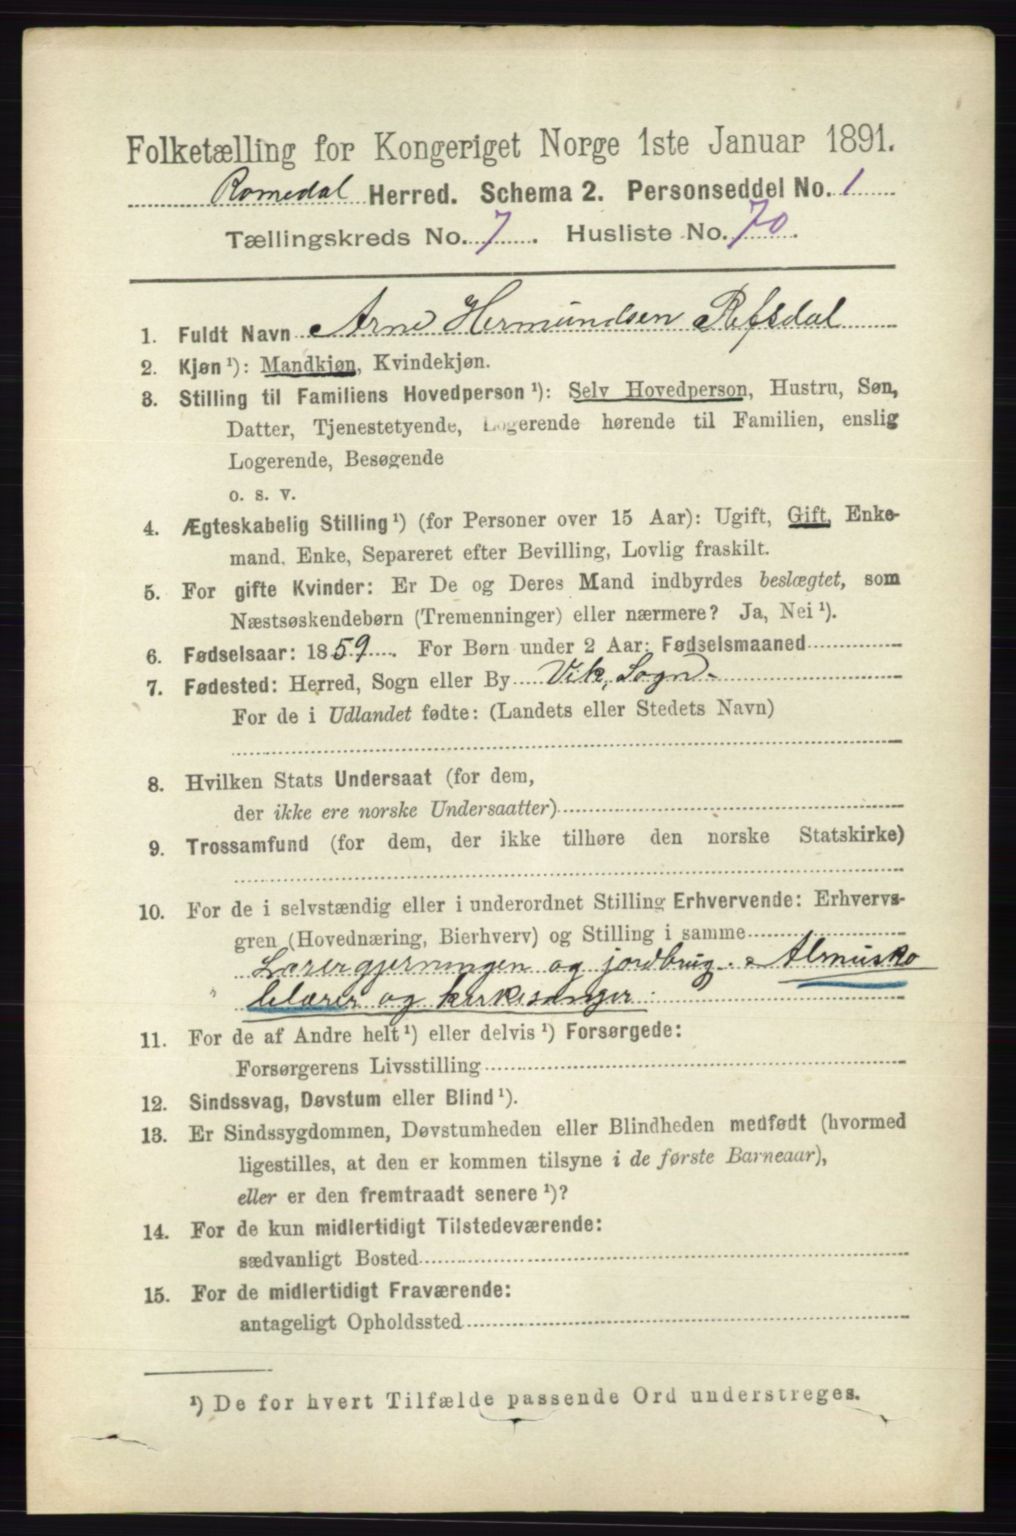 Folketælling for Kongeriget Norge 1ste Januar 1891.
Romedal Herred. Schema 2. Personseddel No. 1
Tællingskreds No. 7. Husliste No. 70.
1. Fuldt Navn Arne Hermundsen Refsdal
2. Kjøn ¹): Mandkjøn, Kvindekjøn.
3. Stilling til Familiens Hovedperson ¹): Selv Hovedperson, Hustru, Søn,
Datter, Tjenestetyende, Logerende hørende til Familien, enslig
Logerende, Besøgende
o. s. v.
4. Ægteskabelig Stilling ¹) (for Personer over 15 Aar): Ugift, Gift, Enke-
mand, Enke, Separeret efter Bevilling, Lovlig fraskilt.
5. For gifte Kvinder: Er De og Deres Mand indbyrdes beslægtet, som
Næstsøskendebørn (Tremenninger) eller nærmere? Ja, Nei ¹).
6. Fødselsaar: 1859. For Børn under 2 Aar: Fødselsmaaned
7. Fødested: Herred, Sogn eller By Vik, Sogn.
For de i Udlandet fødte: (Landets eller Stedets Navn)
8. Hvilken Stats Undersaat (for dem,
der ikke ere norske Undersaatter)
9. Trossamfund (for dem, der ikke tilhøre den norske Statskirke)
10. For de i selvstændig eller i underordnet Stilling Erhvervende: Erhvervs-
gren (Hovednæring, Bierhverv) og Stilling i samme
Lærergjerningen og jordbrug. Almusko
lelærer og kirkesanger
11. For de af Andre helt ¹) eller delvis ¹) Forsørgede:
Forsørgerens Livsstilling
12. Sindssvag, Døvstum eller Blind ¹).
13. Er Sindssygdommen, Døvstumheden eller Blindheden medfødt (hvormed
ligestilles, at den er kommen tilsyne i de første Barneaar),
eller er den fremtraadt senere ¹)?
14. For de kun midlertidigt Tilstedeværende:
sædvanligt Bosted
15. For de midlertidigt Fraværende:
antageligt Opholdssted
¹) De for hvert Tilfælde passende Ord understreges.